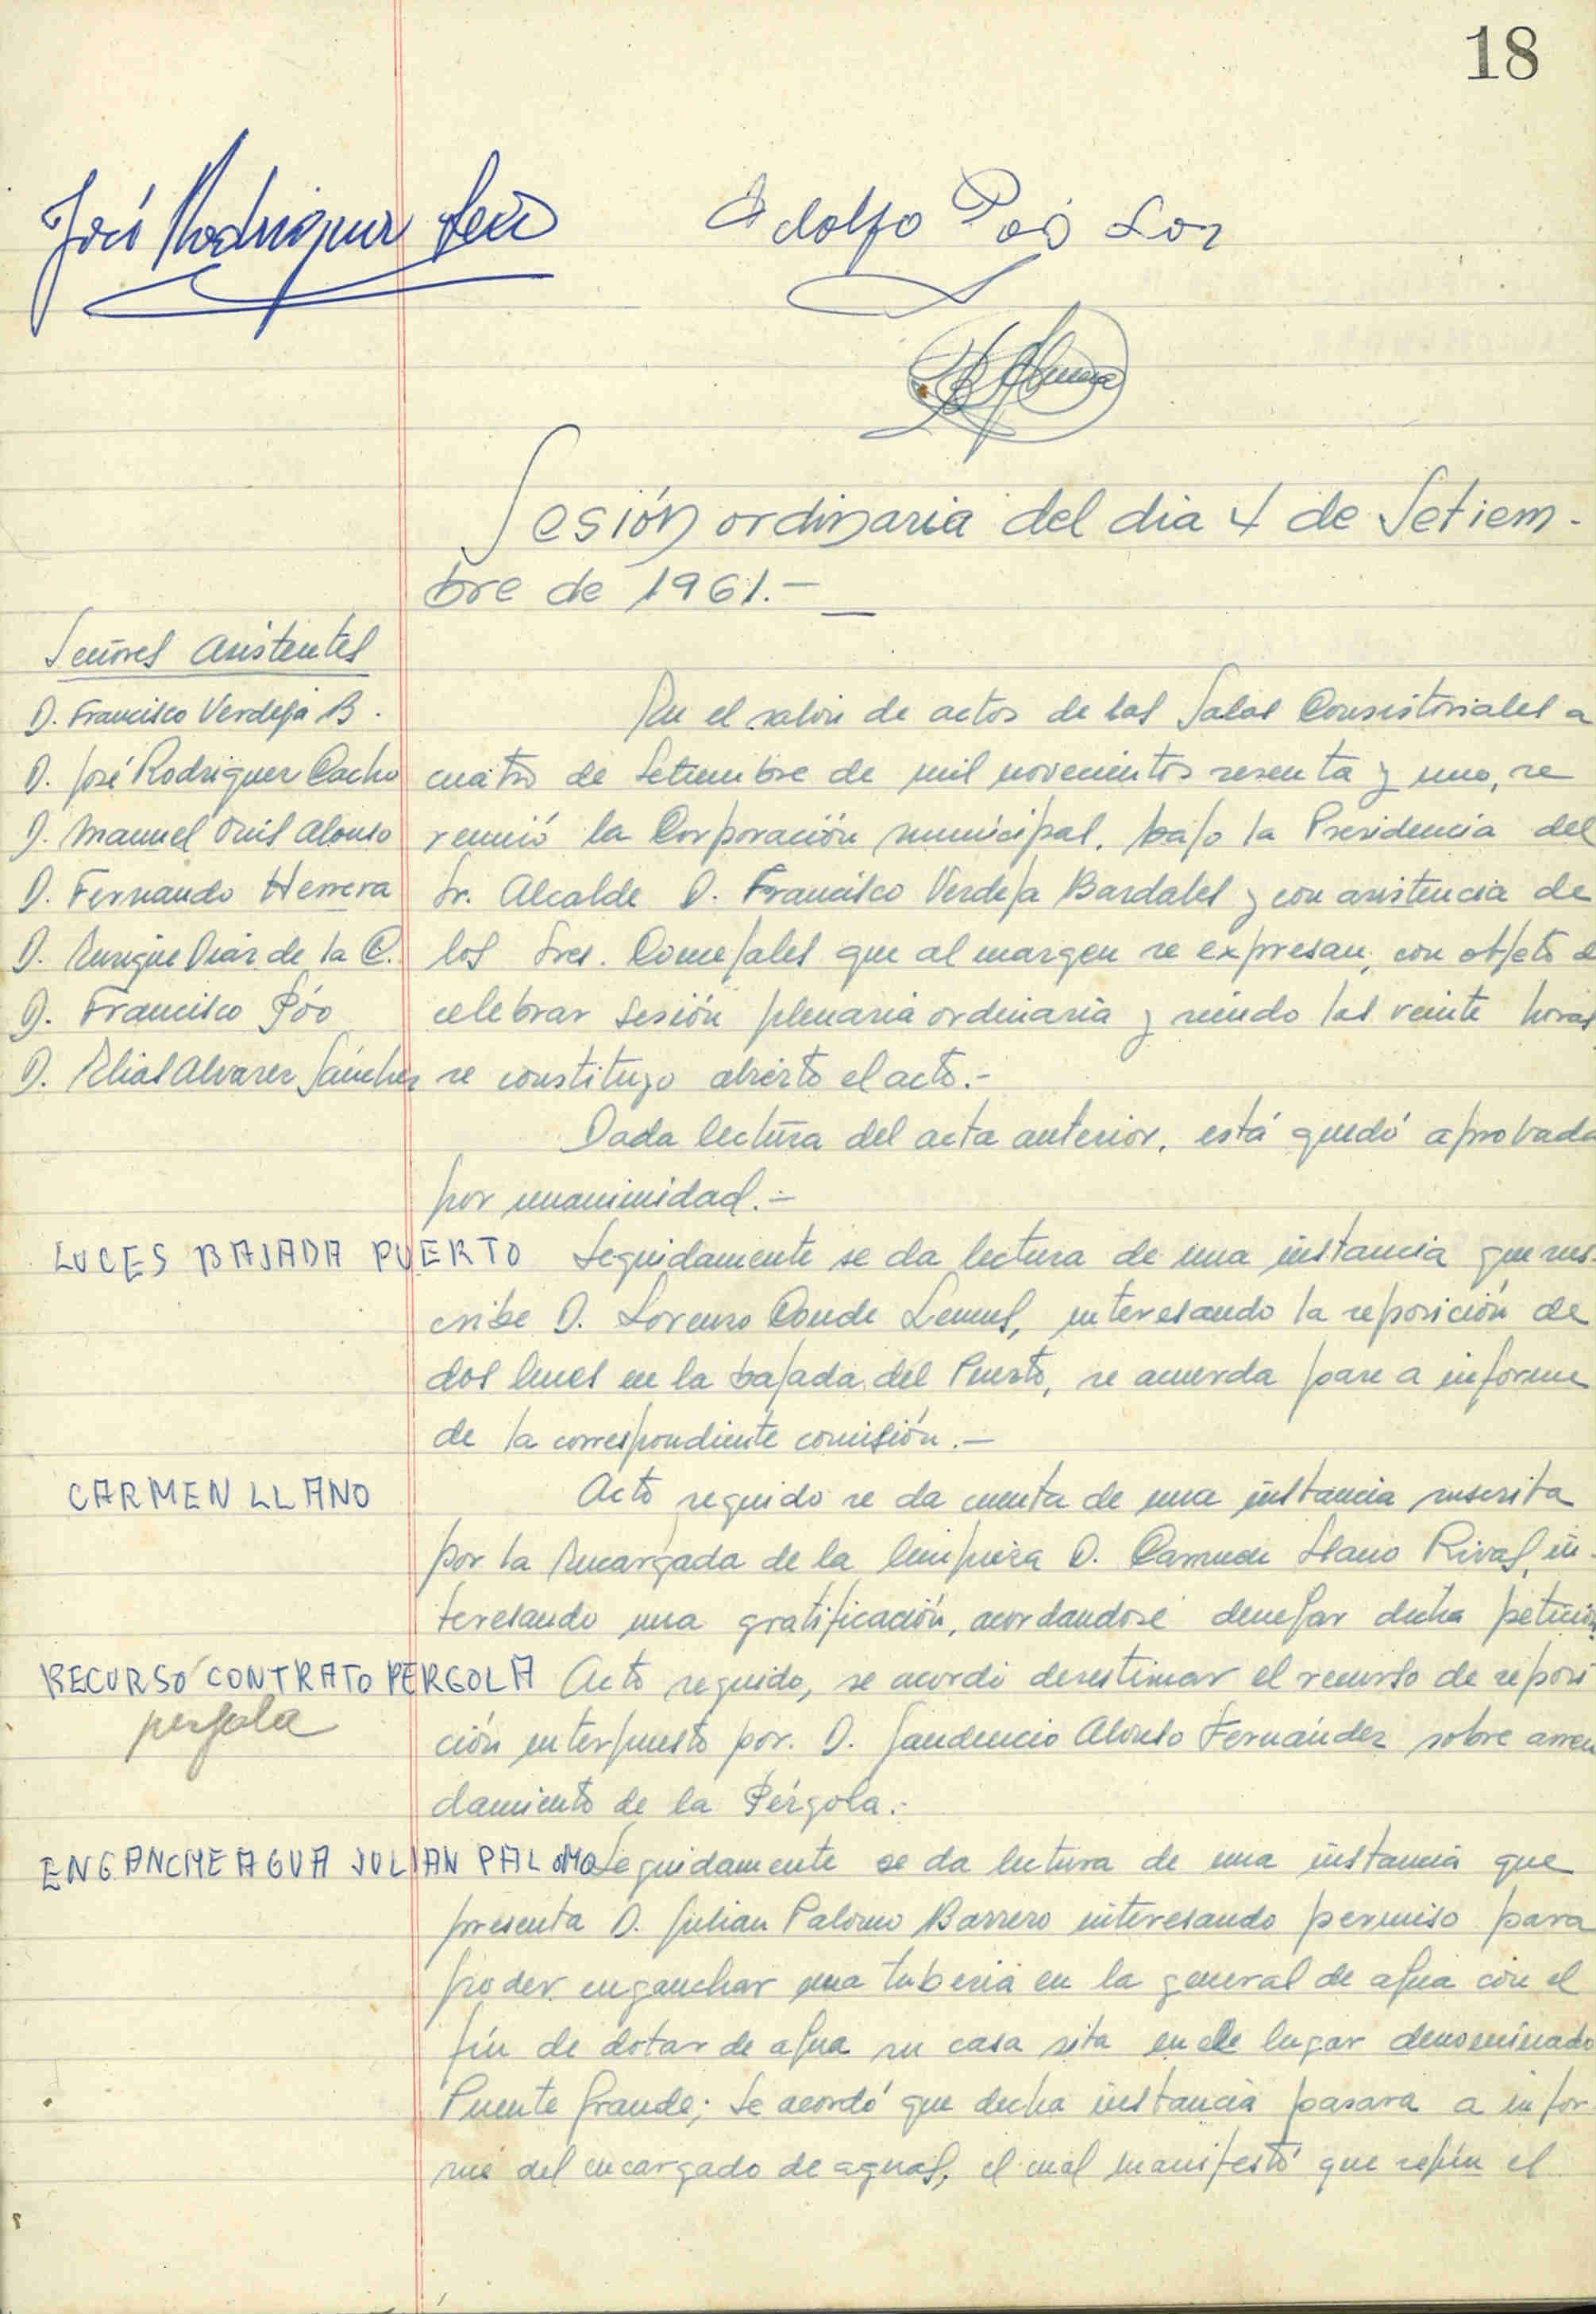 18
José Rodriguez
Adolfo Poó
Sesión ordinaria del dia 4 de Setiem-
bre de 1961.-
Señores Asistentes
D. Francisco Verdeja B.
D. José Rodriguez Cacho
D. Manuel Ruis Alonso
D. Fernando Herrera
D. Enrique Diaz de la C.
D. Francisco Póo
D. Elias Alvarez Sánchez
En el salón de actos de las Salas Consistoriales a
cuatro de Setiembre de mil novecientos sesenta y uno, se
reunió la Corporación municipal, bajo la Presidencia del
Sr. Alcalde D. Francisco Verdeja Bardales y con asistencia de
los Sres. Concejales que al margen se expresan, con objeto d
celebrar sesión plenaria ordinaria y siendo las veinte horas
se constituyo abierto el acto.-
Dada lectura del acta anterior, está quedó aprobada
por unanimidad.-
LUCES BAJADA PUERTO
Seguidamente se da lectura de una instancia que sus-
cribe D. Lorenzo Conde Lemus, interesando la reposición de
dos luces en la bajada del Puerto, se acuerda pase a informe
de la correspondiente comisión.-
CARMEN LLANO
Acto seguido se da cuenta de una instancia suscrita
por la Encargada de la limpieza D. Carmen Llano Rivas, in-
teresando una gratificación, acordandose denegar dicha petición
RECURSO CONTRATO PERGOLA
pergola
Acto seguido, se acordó desestimar el recurso de reposi
ción interpuesto por. D. Gaudencio Alonso Fernández sobre arren
damiento de la Pérgola.-
ENGANCHE AGUA JULIAN PALOMO
Seguidamente se da lectura de una instancia que
presenta D. Julian Palomo Barrero interesando permiso para
poder enganchar una tuberia en la general de agua con el
fin de dotar de agua su casa sita en el lugar denominado
Puente Grande; se acordó que dicha instancia pasara a infor
me del encargado de aguas, el cual manifestó que según el